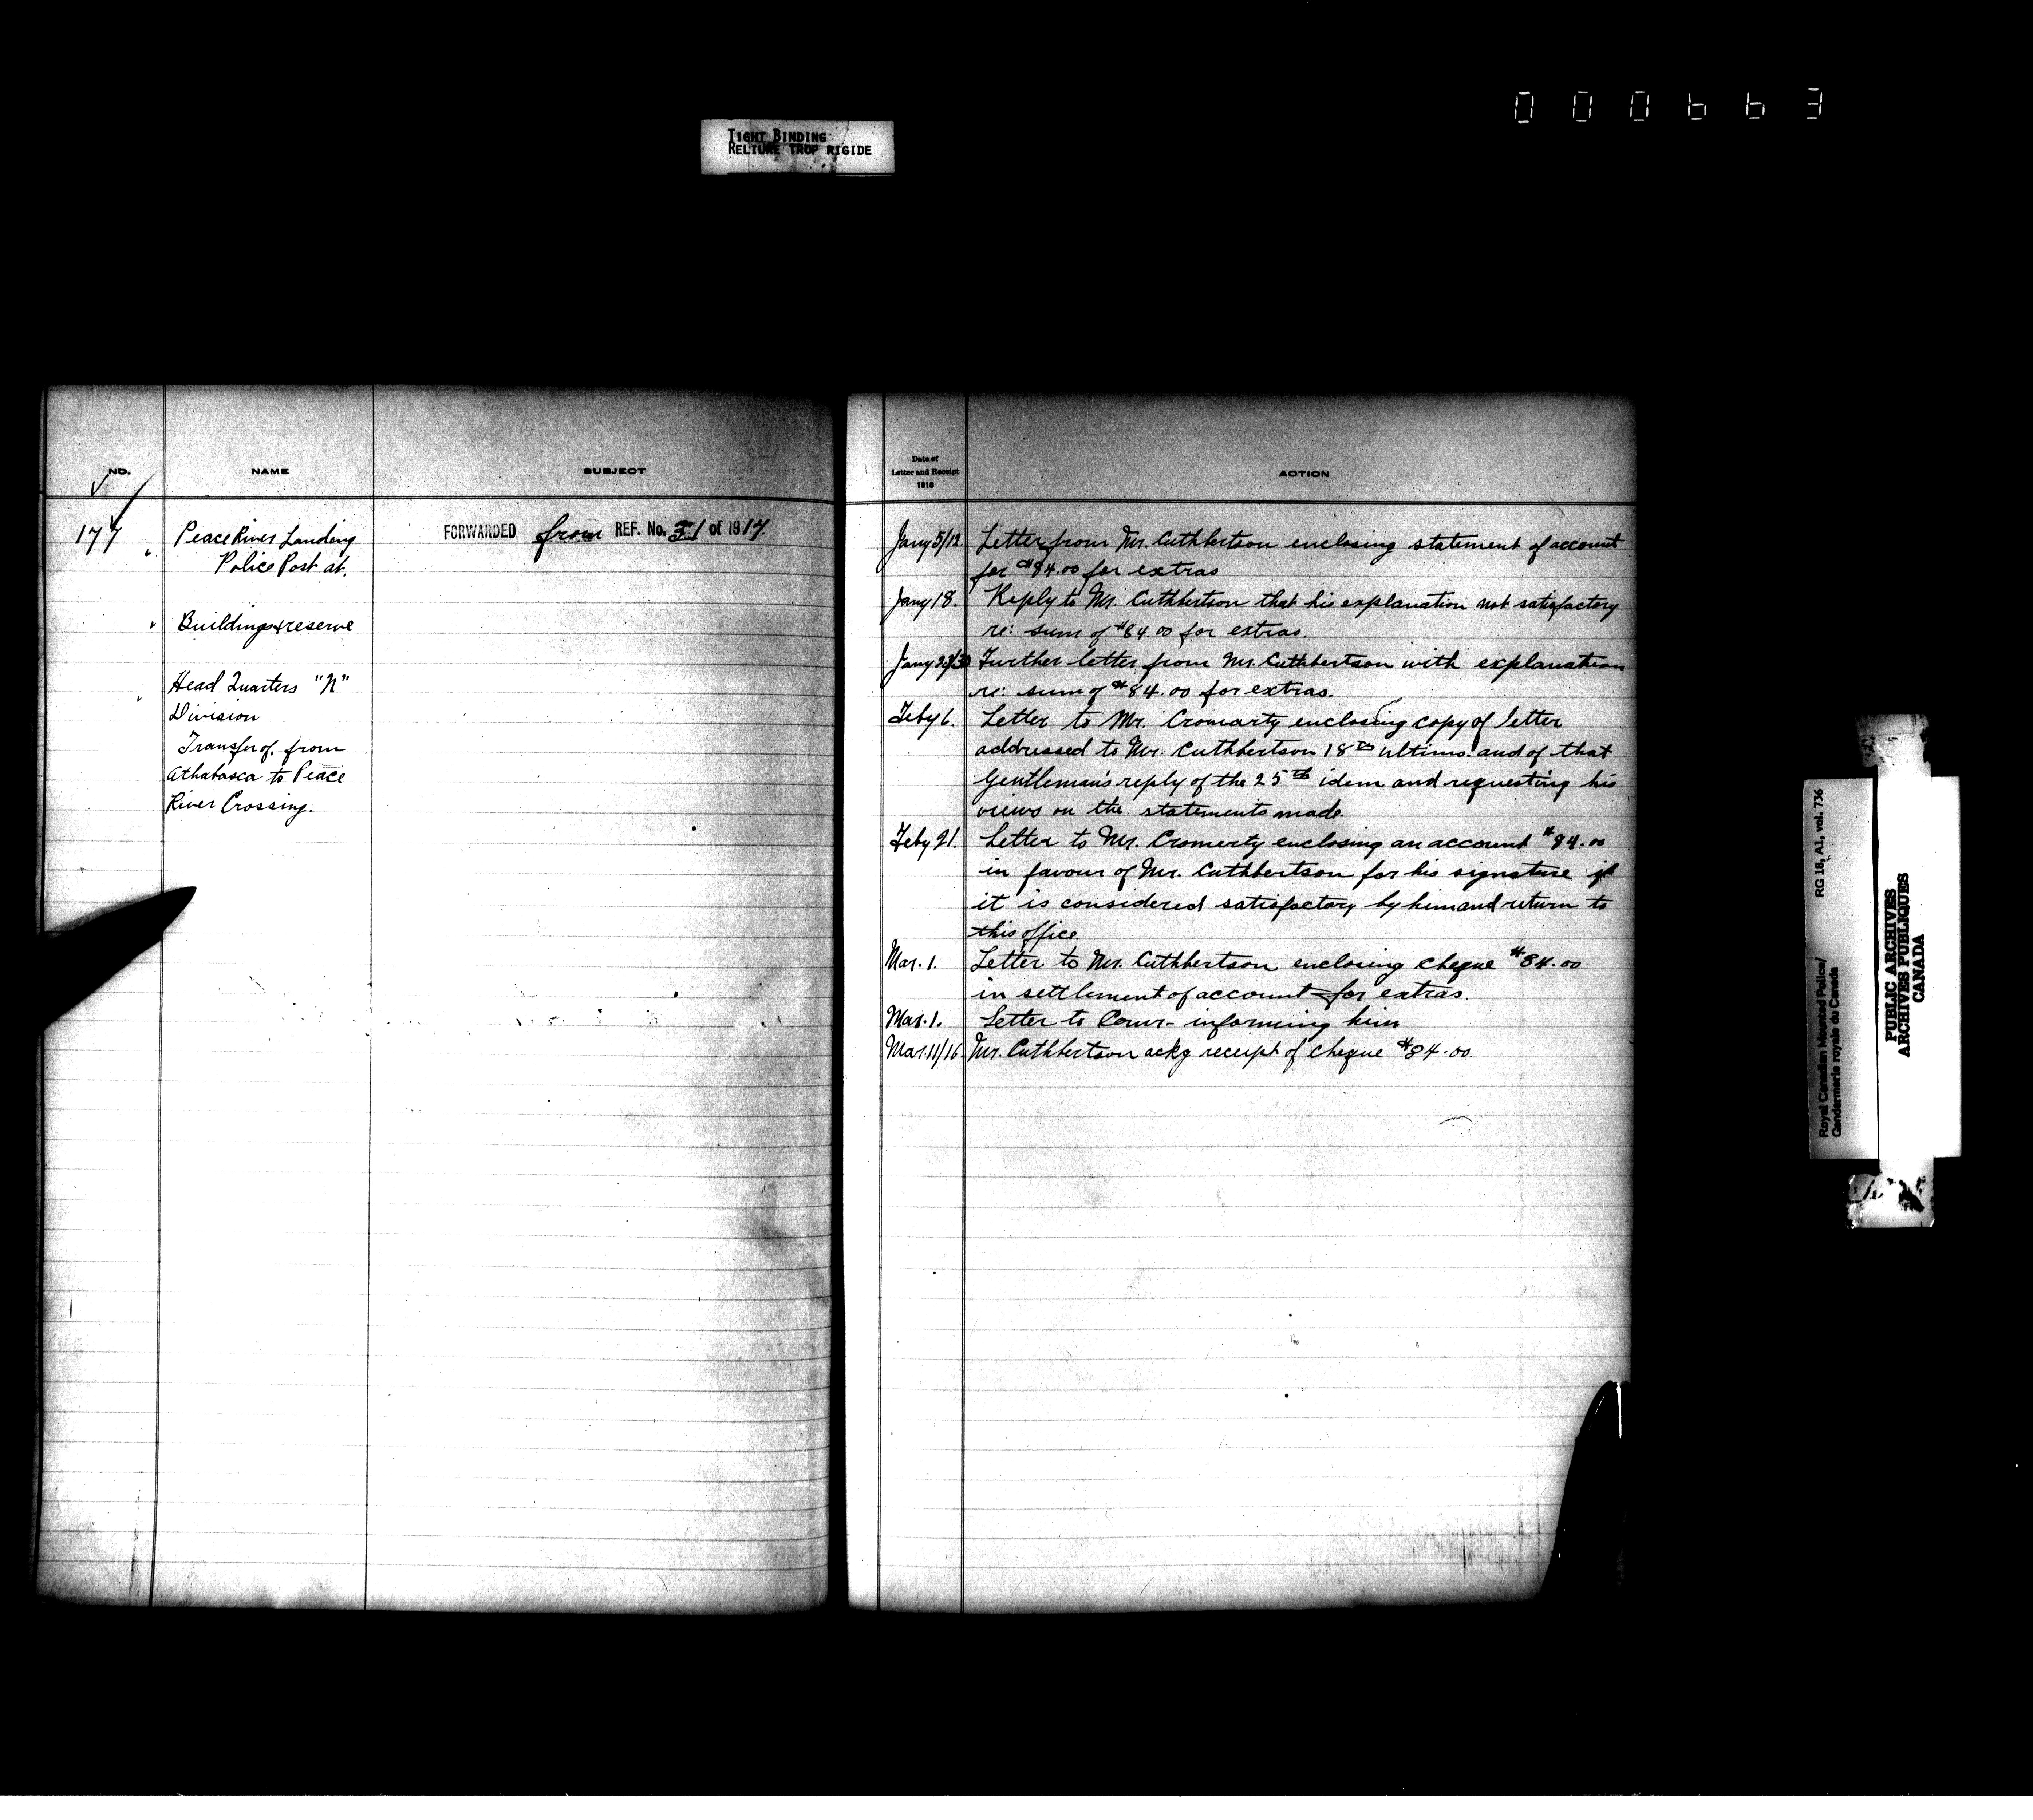 000663
TIGHT BINDING
RELIURE TROP RIGIDE
NO.
NAME
SUBJECT
177
Peace River Landing
Police Post at.
" Buildings & reserve
" Head Quarters "N"
Division
Transfer of, from
Athabasca to Peace
River Crossing.
FORWARDED from REF. No. 31 of 1917.
Date of
Letter and Receipt
1918
ACTION
Jany 5/12. Letter from Mr. Cuthbertson enclosing statement of account
for $84.00 for extras
Jany 18. Reply to Mr. Cuthbertson that his explanation not satisfactory
re: sum of $84.00 for extras.
Jany 25/30 Further letter from Mr. Cuthbertson with explanation
re: sum of $84.00 for extras.
Feby 6. Letter to Mr. Cromarty enclosing copy of letter
addressed to Mr. Cuthbertson 18th ultimo and of that
Gentleman's reply of the 25th idem and requesting his
views on the statements made.
Feby 21. Letter to Mr. Cromerty enclosing an account $84.00
in favour of Mr. Cuthbertson for his signature if
it is considered satisfactory by him and return to
this office.
Mar. 1. Letter to Mr. Cuthbertson enclosing cheque $84.00
in settlement of account for extras.
Mar. 1. Letter to Comr- informing him
Mar. 11/16. Mr. Cuthbertson ackg receipt of cheque $84.00.
Royal Canadian Mounted Police/
Gendarmerie royale du Canada
RG 18, A1, vol. 736
PUBLIC ARCHIVES
ARCHIVES PUBLIQUES
CANADA